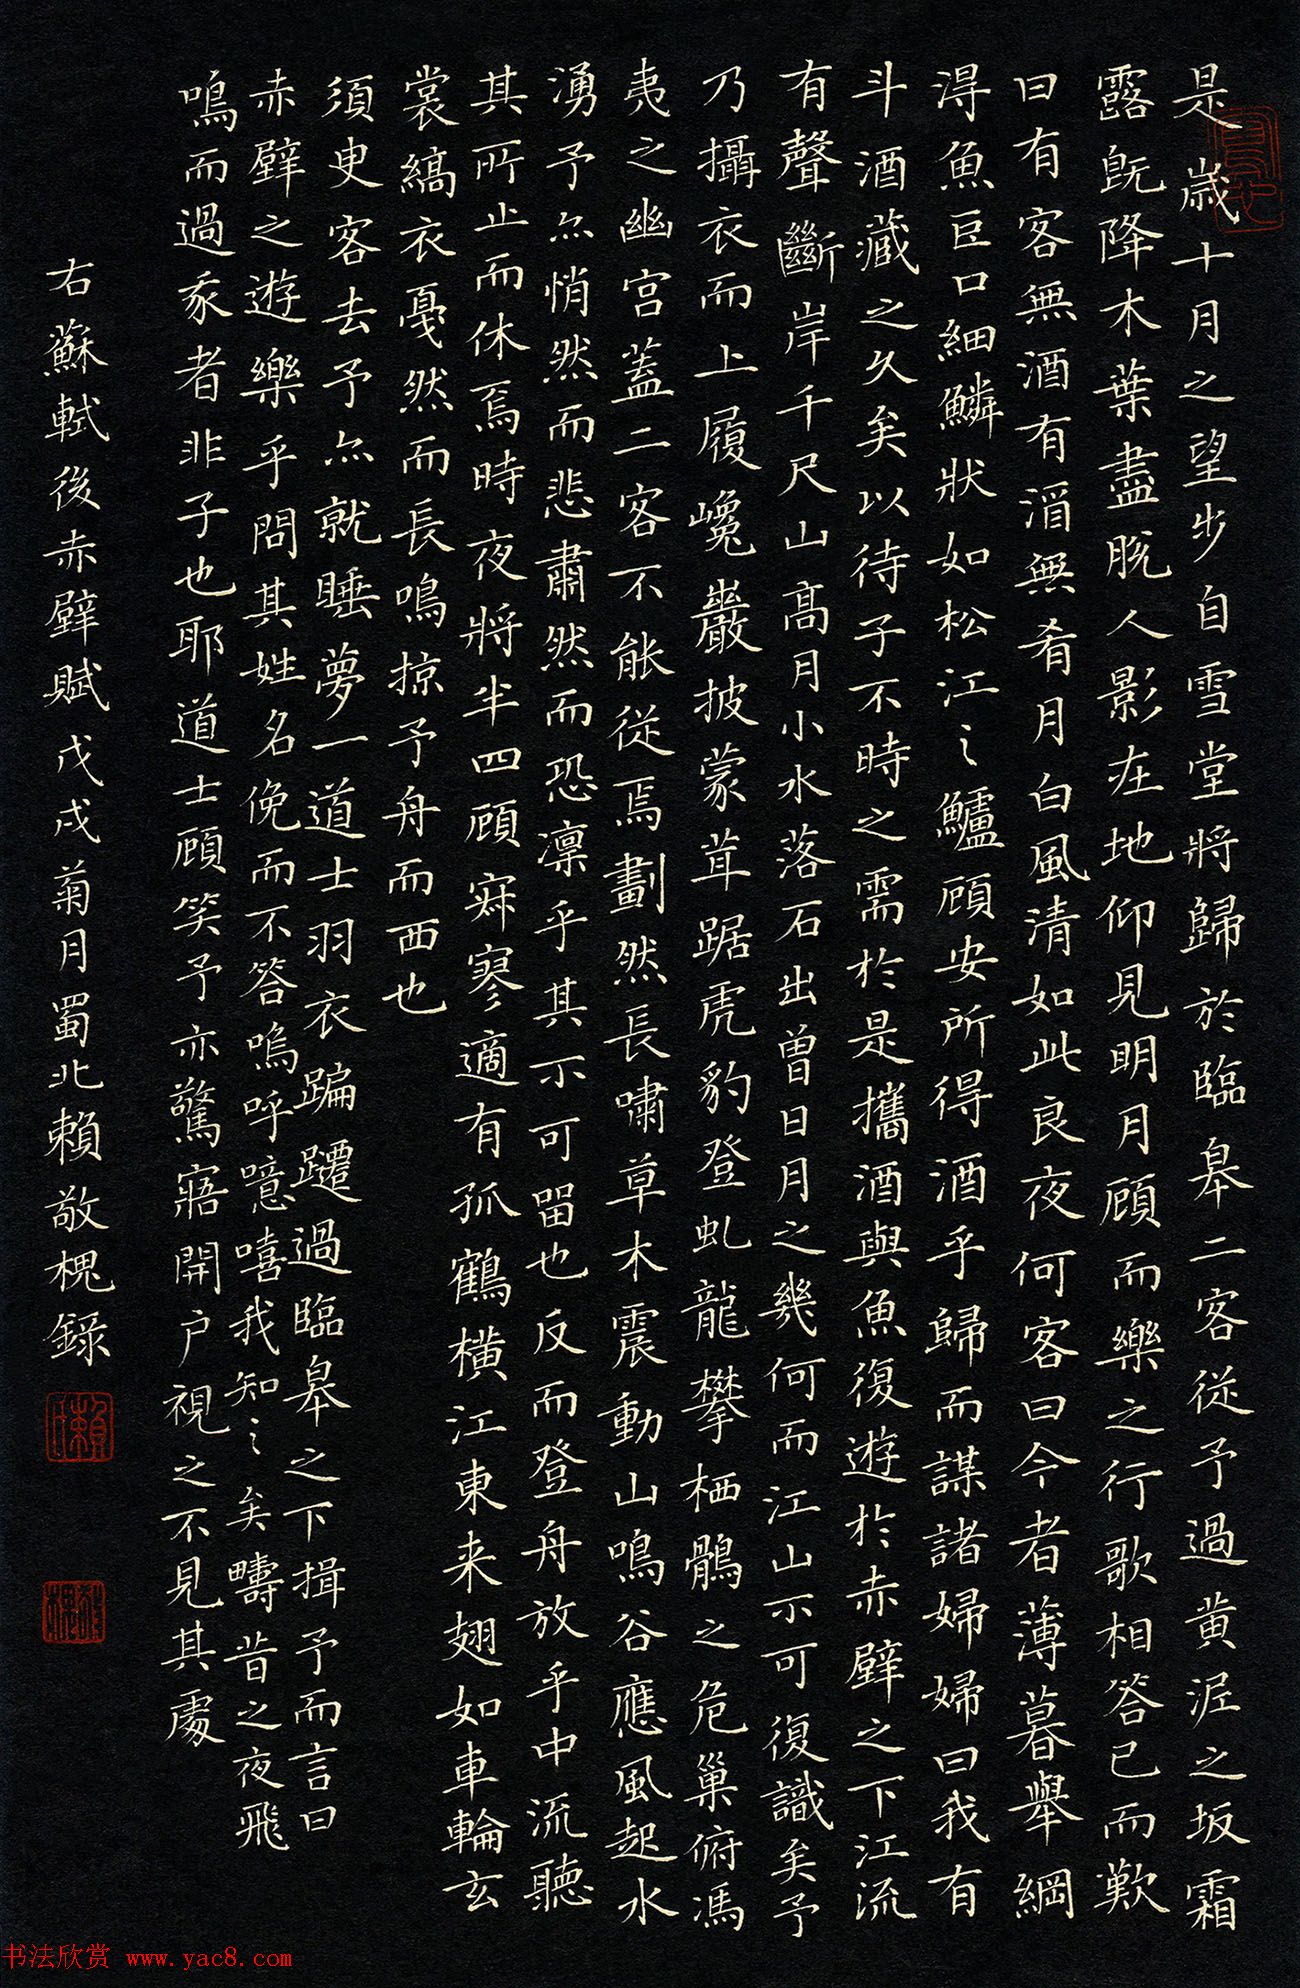 是歲十月之望步自雪堂將歸於臨皋二客從予過黄泥之坂霜
露既降木葉盡脱人影在地仰見明月顧而樂之行歌相答已而歎
曰有客無酒有酒無肴月白風清如此良夜何客曰今者薄暮舉網
得魚巨口細鱗狀如松江之鱸顧安所得酒乎歸而謀諸婦婦曰我有
斗酒藏之久矣以待子不時之需於是攜酒與魚復遊於赤壁之下江流
有聲斷岸千尺山高月小水落石出曾日月之幾何而江山不可復識矣予
乃攝衣而上履巉巖披蒙茸踞虎豹登虬龍攀栖鶻之危巢俯馮
夷之幽宮蓋二客不能從焉劃然長嘯草木震動山鳴谷應風起水
湧予亦悄然而悲肅然而恐凛乎其不可留也反而登舟放乎中流聽
其所止而休焉時夜將半四顧寂寥適有孤鶴横江東来翅如車輪玄
裳縞衣戛然而長鳴掠予舟而西也
須臾客去予亦就睡夢一道士羽衣蹁躚過臨皋之下揖予而言曰
赤壁之遊樂乎問其姓名俛而不答嗚呼噫嘻我知之矣疇昔之夜飛
鳴而過我者非子也耶道士顧笑予亦驚寤開户視之不見其處
右蘇軾後赤壁賦戊戌菊月蜀北賴敬槐錄
书法欣赏 www.yac8.com